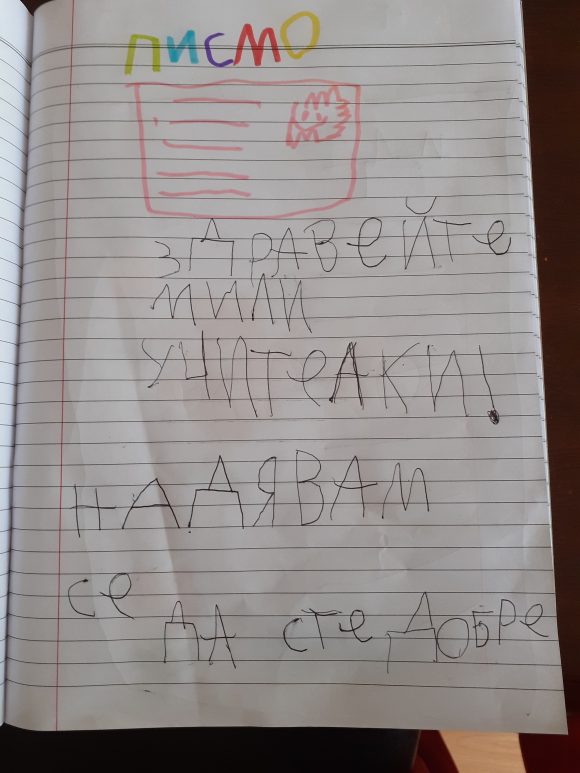 ПИСМО
ЗДРАВЕЙТЕ
МИЛИ
УЧИТЕЛКИ!
НАДЯВАМ
СЕ
ДА СТЕ ДОБРЕ